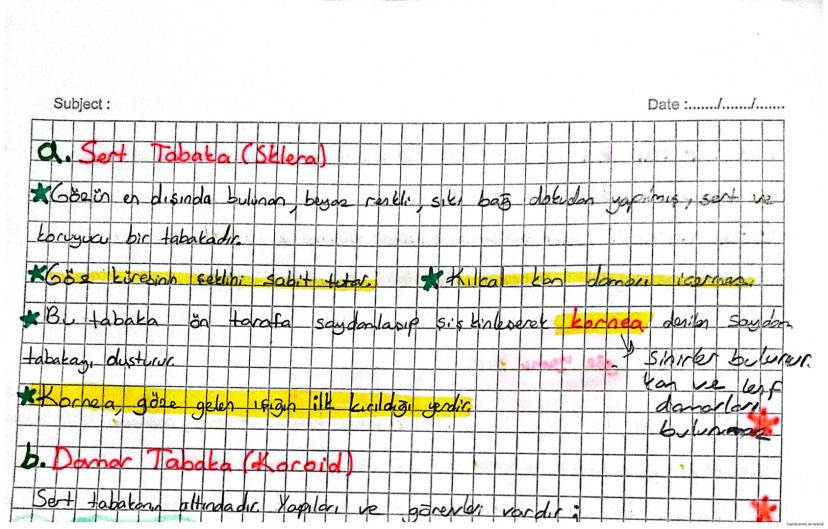 Subject :
Date :......./......./.......
a. Sert Tabaka (Sklera)
★Gözün en dışında bulunan, beyaz renkli, sıkı bağ dokudan yapılmış, sert ve
koruyucu bir tabakadır.
★Göz küresinin şeklini sabit tutar. ★Kılcal kan damarı içermez.
★Bu tabaka ön tarafa saydamlaşıp şişkinleşerek kornea denilen saydam
tabakayı oluşturur.
→ sinirler bulunur.
kan ve lenf
damarları
bulunmaz
★Kornea, göze gelen ışığın ilk kırıldığı yerdir.
b. Damar Tabaka (Koroid)
Sert tabakanın altındadır. Yapıları ve görevleri vardır;